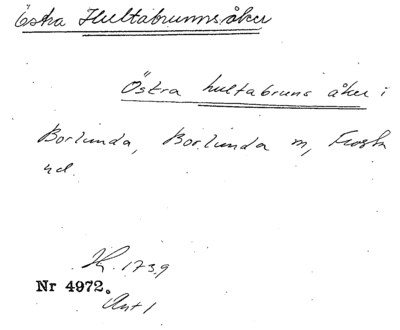 Östra Hultabrunnsåker
Östra hultabruns åker i
Borlunda, Borlunda sn, Frosta
hd.
1739
Nr 4972.
Akt 1